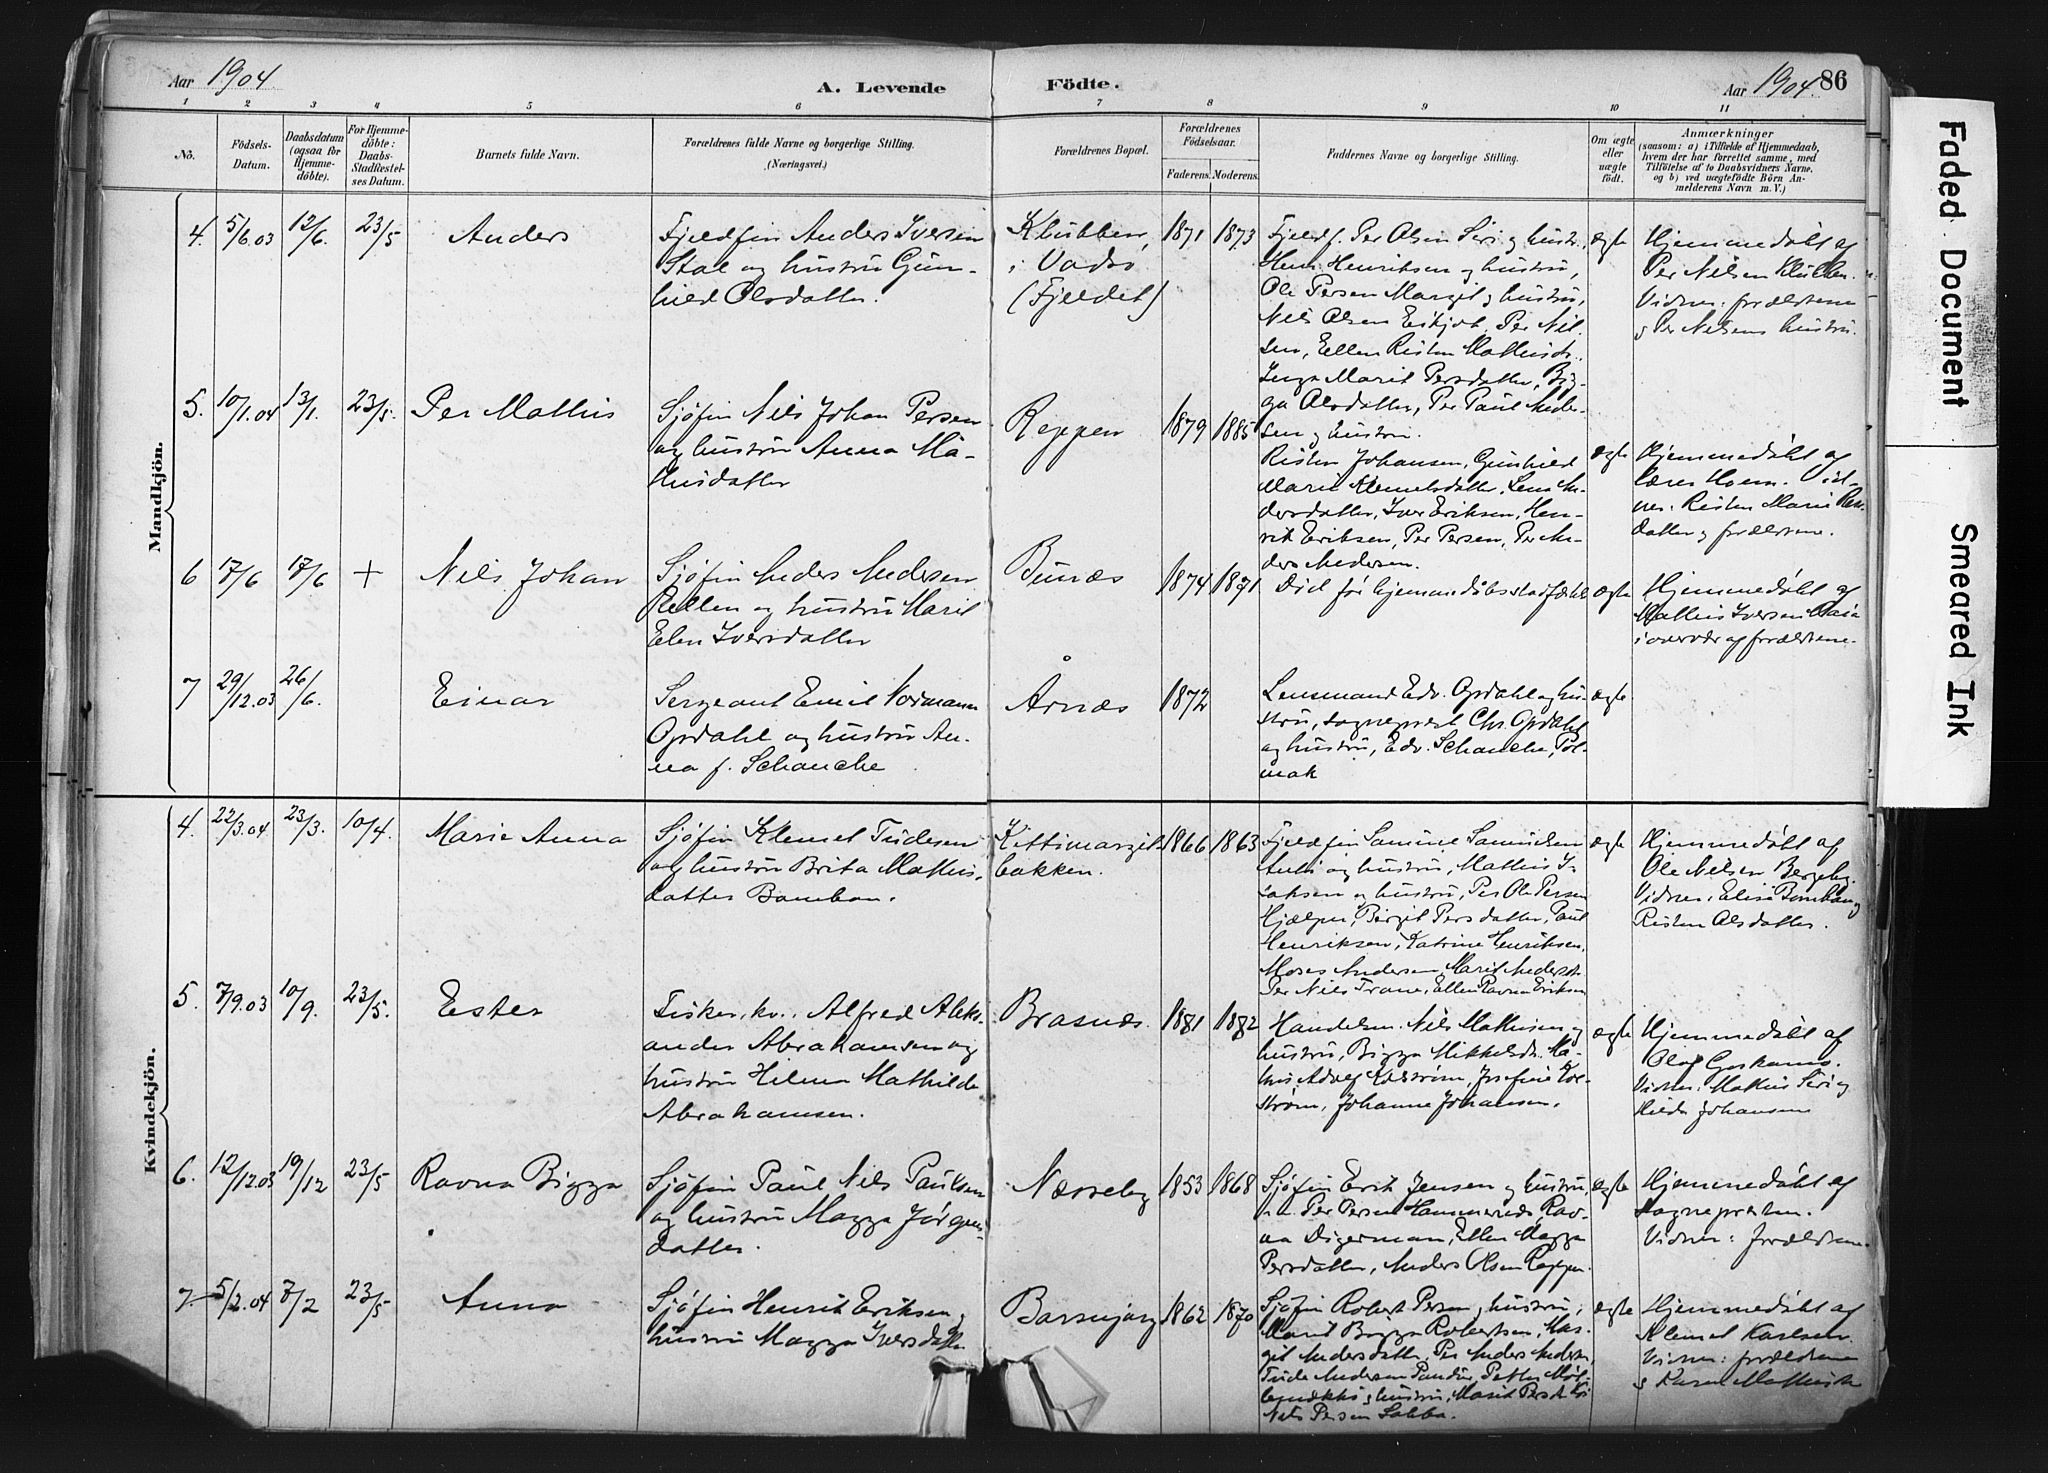 Aar 1904
A. Levende
Födte.
Aar 1904. 86
1 2 3 4 5 6 7 8 9 10 11
No.
Födsels-
Datum.
Daabsdatum
(ogsaa for
Hjemme-
döbte).
For Hjemme-
döbte:
Daabs-
Stadfæstel-
ses Datum.
Barnets fulde Navn.
Forældrenes fulde Navne og borgerlige Stilling.
(Næringsvei.)
Forældrenes Bopæl.
Forældrenes
Födselsaar.
Faderens. Moderens.
Faddernes Navne og borgerlige Stilling.
Om ægte
eller
uægte
födt.
Anmærkninger
(saasom: a) i Tilfælde af Hjemmedaab,
hvem der har forrettet samme, med
Tilföielse af to Daabsvidners Navne,
og b) ved uægtefödte Börn An-
melderens Navn m. V.)
Mandkjön.
4. 5/6.03 12/6. 23/5 Anders
Fjeldfin Anders Iversen
Stal og hustru Gun-
hild Olsdatter.
Klubben
i Vadsö
(Fjeldet)
1871 1873
Fjeldf. Per Olsen Siri og hustr.,
Henr. Henriksen og hustru,
Ole Persen Margit og hustru,
Nils Olsen Per Nil-
sen, Ellen Risten Mathisdt.
Inga Marit Persdatter, Big-
ga Olsdatter, Per Paul Ander-
sen og hustru.
ægte
Hjemmedöbt af
Per Nilsen Klubben.
Vidner: forældrene
og Per Nilsens hustru.
5. 10/1.04 13/1. 23/5. Per Mathis
Sjöfin Nils Johan Persen
og hustru Anna Ma-
thisdatter
Reppen
1879 1885
Risten Johansen, Gunhild
Marie Klemetsdatter, Lena An-
dersdatter, Iver Eriksen, Hen-
rik Eriksen, Per Persen, Per An-
ders Andersen.
ægte
Hjemmedöbt af
lærer Hoem. Vid-
ner: Risten Marie Pers-
datter og forældrene.
6 17/6 17/6 + Nils Johan
Sjöfin Anders Andersen
Rellen og hustru Marit
Elen Iversdatter
Bunæs
1874 1871
Död för hjemmedåbsstadfæstel.
ægte
Hjemmedöbt af
Mathis Iversen
i overvær af forældrene.
7 29/12.03 26/6. Einar
Sergeant Emil Normann
Opdahl og hustru An-
na f. Schanche
Årnæs
1872
Lensmand Edv. Opdahl og hu-
stru, sogneprest Chr. Opdahl
og hustru, Edv. Schanche, Pol-
mak
ægte.
Kvindekjön.
4. 22/3.04 23/3. 10/4. Marie Anna
Sjöfin Klemet Tudesen
og hustru Brita Mathis-
datter Bomban.
Kittimargit-
bakken.
1866 1863
Fjeldfin Samuel Samuelsen
Anti og hustru, Mathis I-
saksen og hustru, Per Ole Persen
Hjælper, Birgit Persdatter, Paul
Henriksen, Katrine Henriksen,
Moses Andersen, Marit Andersdt.
Per Nils Trane, Ellen Ravna Eriksen
ægte
Hjemmedöbt af
Ole Nilsen Bergeby.
Vidner: Elise Bomban og
Risten Olsdatter.
5. 7/9.03 10/9. 23/5. Ester
Fisker, kv. Alfred Aleks-
ander Abrahamsen og
hustru Hilma Mathilde
Abrahamsen.
Brasnæs.
1881 1882
Handelsm. Nils Mathisen og
hustru, Bigga Mikkelsdt. Ma-
this Adolf Edström, Josefine Ed-
ström, Johanne Johansen.
ægte
Hjemmedöbt af
Olaf
Vidner: Mathis Siri og
Hilda Johansen
6. 12/12.03 19/12 23/5 Ravna Bigga
Sjöfin Paul Nils Paulsen
og hustru Magga Jörgens-
datter.
Næsseby
1853 1868
Sjöfin Erik Jensen og hustru,
Per Persen Hammernæs, Rav-
na Digerman, Ellen Magga
Persdatter, Anders Olsen Reppen.
ægte
Hjemmedöbt af
Sognepresten.
Vidner: forældrene.
7. 5/2.04 7/2 23/5 Anna
Sjöfin Henrik Eriksen og
hustru Magga Iversdatter
Barsnjarg
1862 1870
Sjöfin Robert Persen og hustru,
Marit Bigga Robertsen, Mar-
git Andersdatter, Per Anders Andersen,
Tude Andersen Petter
og hustru, Marit Persdt.
Nils Persen Sabba.
ægte
Hjemmedöbt af
Klemet Karlsen.
Vidner: forældrene
og Karen Mathisdt.
Faded Document
Smeared Ink